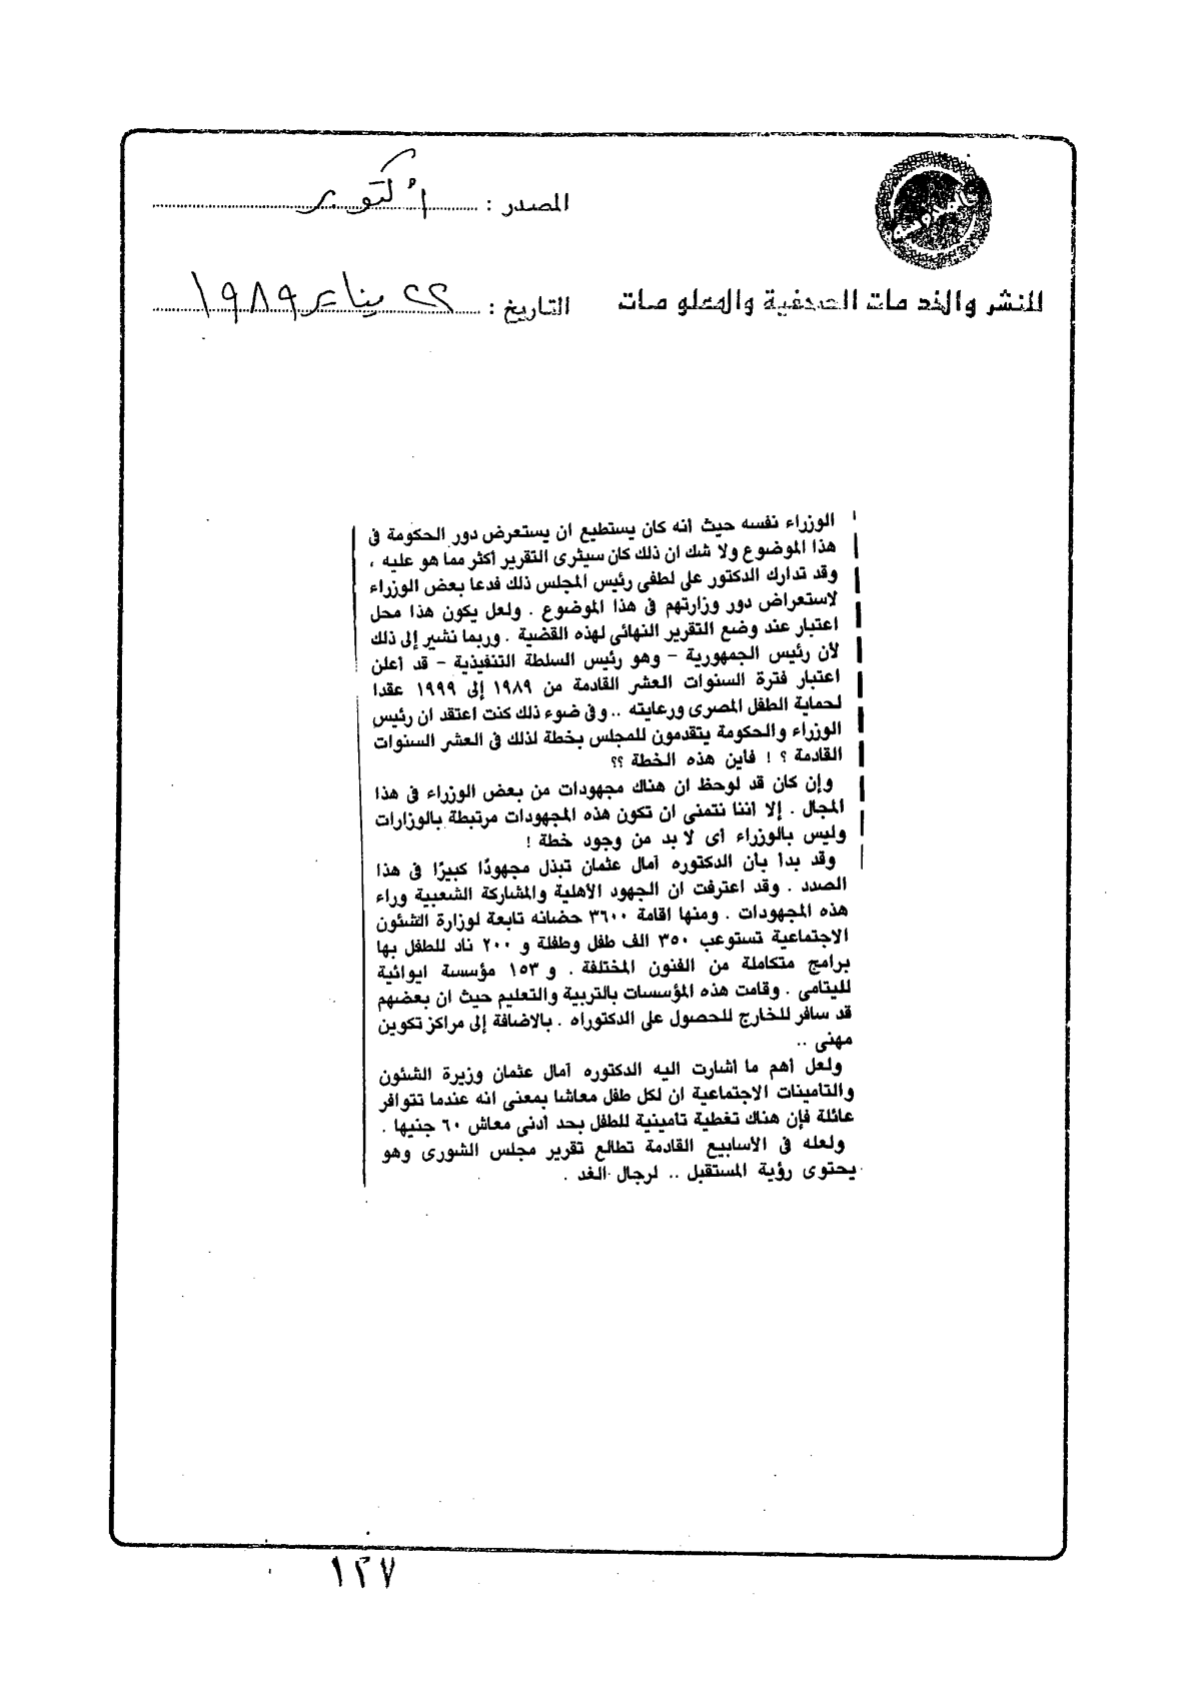 المصدر : أكتوبر
للنشر والخدمات الصحفية والمعلومات
التاريخ : ٢٢ يناير ١٩٨٩
الوزراء نفسه حيث انه كان يستطيع ان يستعرض دور الحكومة فى
هذا الموضوع ولا شك ان ذلك كان سيثرى التقرير أكثر مما هو عليه ،
وقد تدارك الدكتور على لطفى رئيس المجلس ذلك فدعا بعض الوزراء
لاستعراض دور وزارتهم فى هذا الموضوع . ولعل يكون هذا محل
اعتبار عند وضع التقرير النهائى لهذه القضية . وربما نشير إلى ذلك
لأن رئيس الجمهورية - وهو رئيس السلطة التنفيذية - قد أعلن
اعتبار فترة السنوات العشر القادمة من ١٩٨٩ إلى ١٩٩٩ عقدا
لحماية الطفل المصرى ورعايته .. وفى ضوء ذلك كنت اعتقد ان رئيس
الوزراء والحكومة يتقدمون للمجلس بخطة لذلك فى العشر السنوات
القادمة ؟ ! فاين هذه الخطة ؟؟
وإن كان قد لوحظ ان هناك مجهودات من بعض الوزراء فى هذا
المجال . إلا اننا نتمنى ان تكون هذه المجهودات مرتبطة بالوزارات
وليس بالوزراء أى لا بد من وجود خطة !
وقد بدأ بان الدكتوره آمال عثمان تبذل مجهودًا كبيرًا فى هذا
الصدد . وقد اعترفت ان الجهود الأهلية والمشاركة الشعبية وراء
هذه المجهودات . ومنها اقامة ٣٦٠٠ حضانه تابعة لوزارة الشئون
الاجتماعية تستوعب ٣٥٠ الف طفل وطفلة و ٢٠٠ ناد للطفل بها
برامج متكاملة من الفنون المختلفة . و ١٥٣ مؤسسة ايوائية
لليتامى . وقامت هذه المؤسسات بالتربية والتعليم حيث ان بعضهم
قد سافر للخارج للحصول على الدكتوراه . بالاضافة إلى مراكز تكوين
مهنى ..
ولعل أهم ما أشارت اليه الدكتوره آمال عثمان وزيرة الشئون
والتأمينات الاجتماعية ان لكل طفل معاشا بمعنى انه عندما تتوافر
عائلة فإن هناك تغطية تأمينية للطفل بحد أدنى معاش ٦٠ جنيها .
ولعله فى الأسابيع القادمة تطالع تقرير مجلس الشورى وهو
يحتوى رؤية المستقبل .. لرجال الغد .
١٢٧